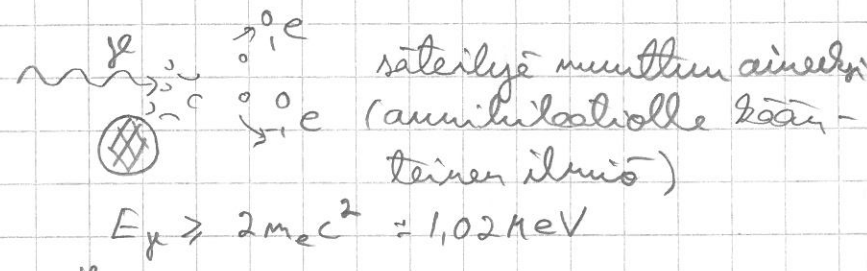 γ ⁰₁e säteilyä muuttuu aineeksi
⁰₋₁e (annihilaatiolle kään-
teinen ilmiö)
E_γ ≥ 2mₑc² = 1,02 MeV